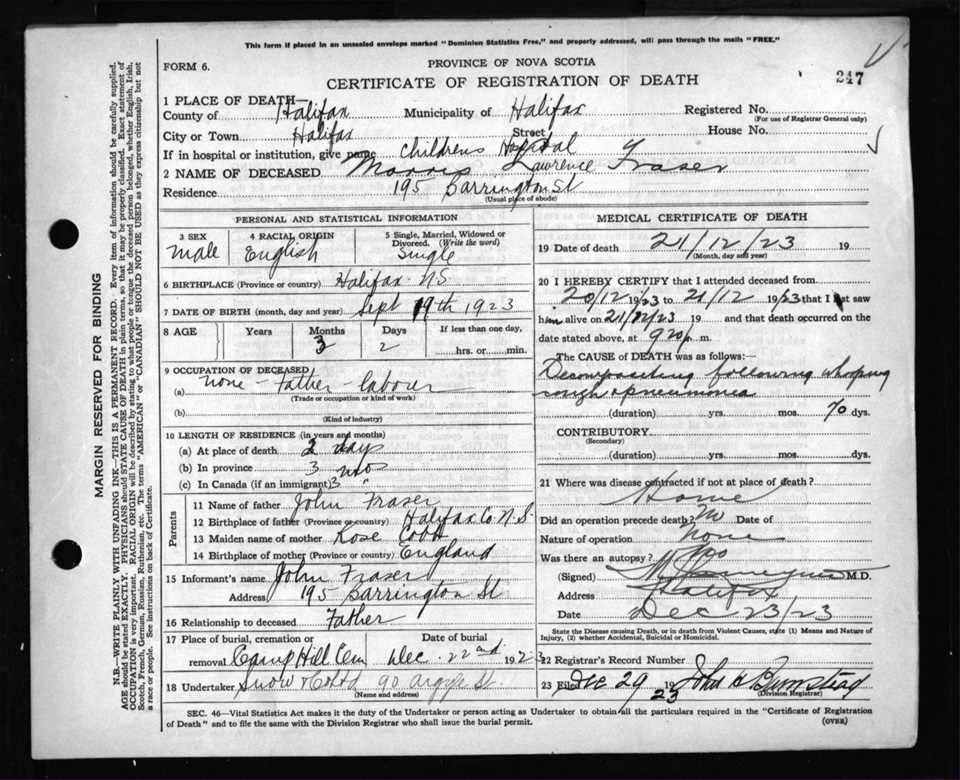 This form if placed in an unsealed envelope marked "Dominion Statistics Free," and properly addressed, will pass through the mails "FREE."
FORM 6.
PROVINCE OF NOVA SCOTIA
CERTIFICATE OF REGISTRATION OF DEATH
247
1 PLACE OF DEATH—
County of Halifax Municipality of Halifax Registered No.
(For use of Registrar General only)
City or Town Halifax Street House No.
If in hospital or institution, give name Childrens Hospital
2 NAME OF DECEASED Morris Lawrence Fraser
Residence 195 Barrington St
(Usual place of abode)
PERSONAL AND STATISTICAL INFORMATION
3 SEX Male
4 RACIAL ORIGIN English
5 Single, Married, Widowed or Divorced. (Write the word) Single
6 BIRTHPLACE (Province or country) Halifax N.S.
7 DATE OF BIRTH (month, day and year) Sept 19th 1923
8 AGE Years Months 3 Days 2 If less than one day, hrs. or min.
9 OCCUPATION OF DECEASED
(a) None - Father - laborer
(Trade or occupation or kind of work)
(b)
(Kind of industry)
10 LENGTH OF RESIDENCE (in years and months)
(a) At place of death 2 days
(b) In province 3 mos
(c) In Canada (if an immigrant) 3 "
Parents
11 Name of father John Fraser
12 Birthplace of father (Province or country) Halifax Co N.S.
13 Maiden name of mother Rose
14 Birthplace of mother (Province or country) England
15 Informant's name John Fraser
Address 195 Barrington St
16 Relationship to deceased Father
17 Place of burial, cremation or removal Camp Hill Cem Date of burial Dec. 22nd 1923
18 Undertaker Snow & Co Ltd 90 Argyle St.
(Name and address)
MEDICAL CERTIFICATE OF DEATH
19 Date of death 21/12/23 19
(Month, day and year)
20 I HEREBY CERTIFY that I attended deceased from
20/12 1923 to 21/12 1923 that I last saw
him alive on 21/12/23 19 and that death occurred on the
date stated above, at 9 20 p. m.
The CAUSE of DEATH was as follows:—
following whooping
cough & pneumonia
(duration) yrs. mos. 10 dys.
CONTRIBUTORY
(Secondary)
(duration) yrs. mos. dys.
21 Where was disease contracted if not at place of death?
Home
Did an operation precede death? No Date of
Nature of operation None
Was there an autopsy? No
(Signed) M.D.
Address Halifax
Date Dec 23/23
State the Disease causing Death, or in death from Violent Causes, state (1) Means and Nature of Injury, (2) whether Accidental, Suicidal or Homicidal.
22 Registrar's Record Number
23 Filed Dec 29 1923 John H Bumstead
(Division Registrar)
SEC. 46—Vital Statistics Act makes it the duty of the Undertaker or person acting as Undertaker to obtain all the particulars required in the "Certificate of Registration
of Death" and to file the same with the Division Registrar who shall issue the burial permit.
(OVER)
MARGIN RESERVED FOR BINDING
N.B.—WRITE PLAINLY WITH UNFADING INK—THIS IS A PERMANENT RECORD. Every item of information should be carefully supplied.
AGE should be stated EXACTLY. PHYSICIANS should STATE CAUSE OF DEATH in plain terms, so that it may be properly classified. Exact statement of
OCCUPATION is very important. RACIAL ORIGIN will be described by stating to what people or tongue the deceased person belonged, whether English, Irish,
Scotch, French, German, Russian, Ruthenian, etc. The terms "AMERICAN" or "CANADIAN" SHOULD NOT BE USED as they express citizenship but not
a race or people. See instructions on back of Certificate.